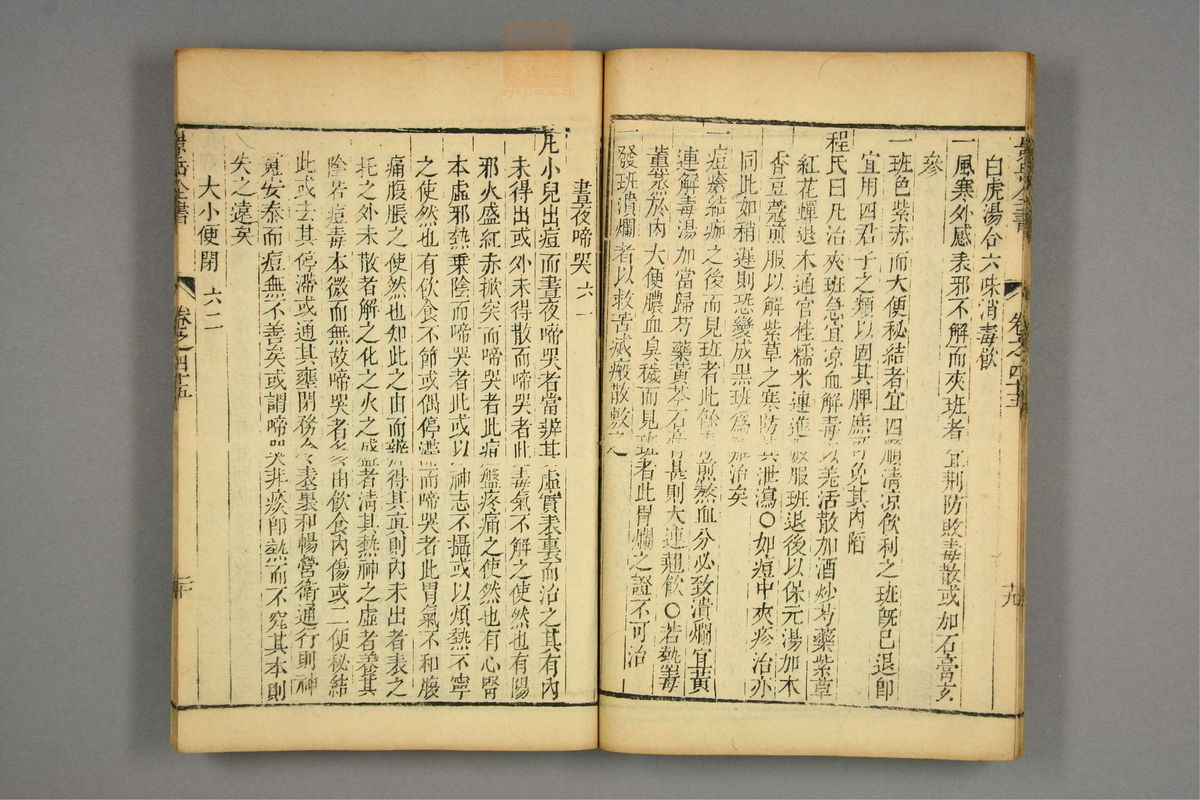 景岳全書 卷之四十五
白虎湯合六味消毒飲
一風寒外感表邪不解而夾班者宜荊防敗毒散或加石膏玄
參
一班色紫赤而大便秘結者宜四順清凉飲利之班既已退即
宜用四君子之類以固其脾庶可免其内陷
程氏曰凡治夾班急宜凉血解毒以羗活散加酒炒芍藥紫草
紅花蟬退木通官桂糯米連進數服班退後以保元湯加木
香豆蔻煎服以解紫草之寒防其泄瀉〇如痘中夾疹治亦
同此如稍遲則恐變成黑班為難治矣
一痘瘡結痂之後而見班者此餘毒煎熬血分必致潰爛宜黄
連解毒湯加當歸芍藥黃芩石膏甚則大連翹飲〇若熱毒
薫蒸於内大便膿血臭穢而見班者此胃爛之證不可治
一發班潰爛者以救苦滅瘢散敷之
晝夜啼哭 六一
凡小兒出痘而晝夜啼哭者當辨其虛實表裏而治之其有内
未得出或外未得散而啼哭者此毒氣不解之使然也有陽
邪火盛紅赤掀突而啼哭者此痘盤疼痛之使然也有心腎
本虛邪熱乗陰而啼哭者此或以神志不攝或以煩熱不寧
之使然也有飲食不節或偶停滯而啼哭者此胃氣不和腹
痛腹脹之使然也知此之由而辨得其真則内未出者表之
托之外未散者解之化之火之盛者清其熱神之虛者養其
隂若痘毒本微而無故啼哭者多由飲食内傷或二便秘結
此或去其停滯或通其壅閉務令表裏和暢營衛通行則神
竟安泰而痘無不善矣或謂啼哭非痰即熱而不究其本則
失之遠矣
大小便閉 六二
景岳全書 卷之四十五